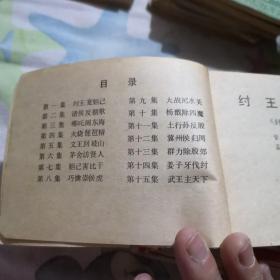 目 录
第一集 纣王宠妲己
第二集 诸侯反朝歌
第三集 哪吒闹东海
第四集 火烧琵琶精
第五集 文王回岐山
第六集 茅舍访贤人
第七集 妲己害比干
第八集 巧擒崇侯虎
第九集 大战泗水关
第十集 杨戬除四魔
第十一集 土行孙反殷
第十二集 冀州侯归周
第十三集 群力除殷郊
第十四集 姜子牙代封
第十五集 武王主天下
纣王